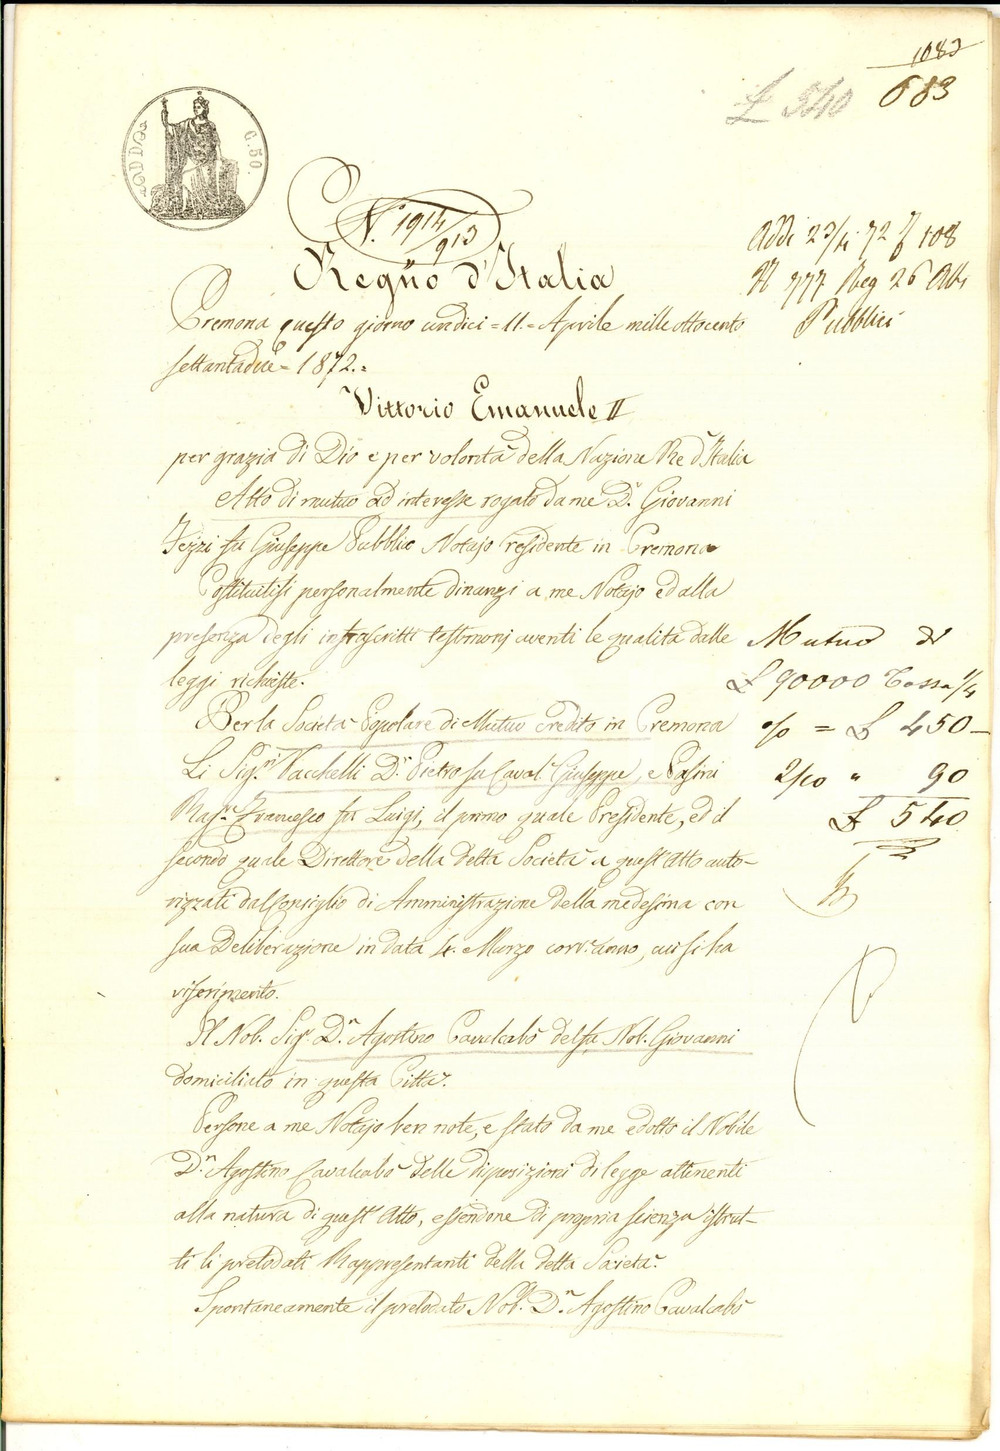 1082
683
£ 540
C. 50.
N.° 1914/913
Regno d'Italia
Addi 23/4 72 f 108
N 777 Reg 26 Atti
Pubblici
Cremona questo giorno undici = 11. = Aprile mille ottocento
settantadue = 1872. =
Vittorio Emanuele II
per grazia di Dio e per volontà della Nazione Re d'Italia
Atto di mutuo ad interesse rogato da me D.r Giovanni
Fezzi fu Giuseppe Pubblico Notajo residente in Cremona
Costituitisi personalmente dinanzi a me Notajo ed alla
presenza degli infrascritti testimonj aventi le qualità dalle
leggi richieste.
Mutuo di
£ 90000 Tassa 1/4
Per la Società Popolare di Mutuo Credito in Cremona
% = £ 450 –
Li Sig.ri Vacchelli D.r Pietro fu Caval. Giuseppe, e Pasini
2/10 " 90
Rag.r Francesco fu Luigi, il primo quale Presidente, ed il
£ 540
secondo quale Direttore della detta Società a quest'Atto auto-
rizzati dal Consiglio di Amministrazione della medesima con
sua Deliberazione in data 4. Marzo corr.e anno, cui si ha
riferimento.
Il Nob. Sig.r D.n Agostino Cavalcabò del fu Nob. Giovanni
domiciliato in questa Città.
Persone a me Notajo ben note, e stato da me edotto il Nobile
D.n Agostino Cavalcabò delle disposizioni di legge attinenti
alla natura di quest'Atto, essendone di propria scienza istrut-
ti li prelodati Rappresentanti della detta Società.
Spontaneamente il prelodato Nob. D.n Agostino Cavalcabò